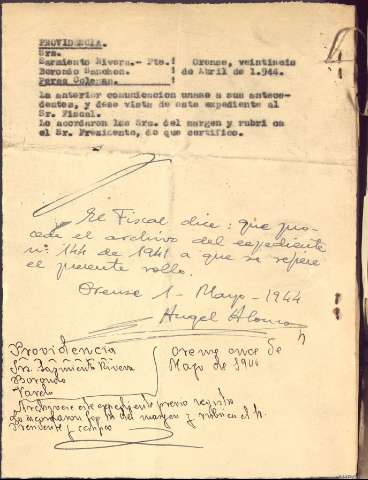 PROVIDENCIA.
Srs.
Sarmiento Rivera.- Pte.! Orense, veintiseis
Borondo Sanchez. ! de Abril de 1.944.
Peres Coleman. !
La anterior comunicacion unase a sus antece-
dentes, y dese vista de este expediente al
Sr. Fiscal.
Lo acordaron los Srs. del margen y rubri ca
el Sr. Presidente, de que certifico.
El Fiscal dice: que pro-
cede el archivo del expediente
nº. 144 de 1941 a que se refiere
el presente rollo.
Orense 1 - Mayo - 1944
Angel Alonso
Providencia
Srs Sarmiento Rivera
Borondo
Varela
Orense once de
Mayo de 1944
Archivese este expediente previo registro
Lo acordaron los Srs del margen y rubrica el Sr.
Presidente y certifico